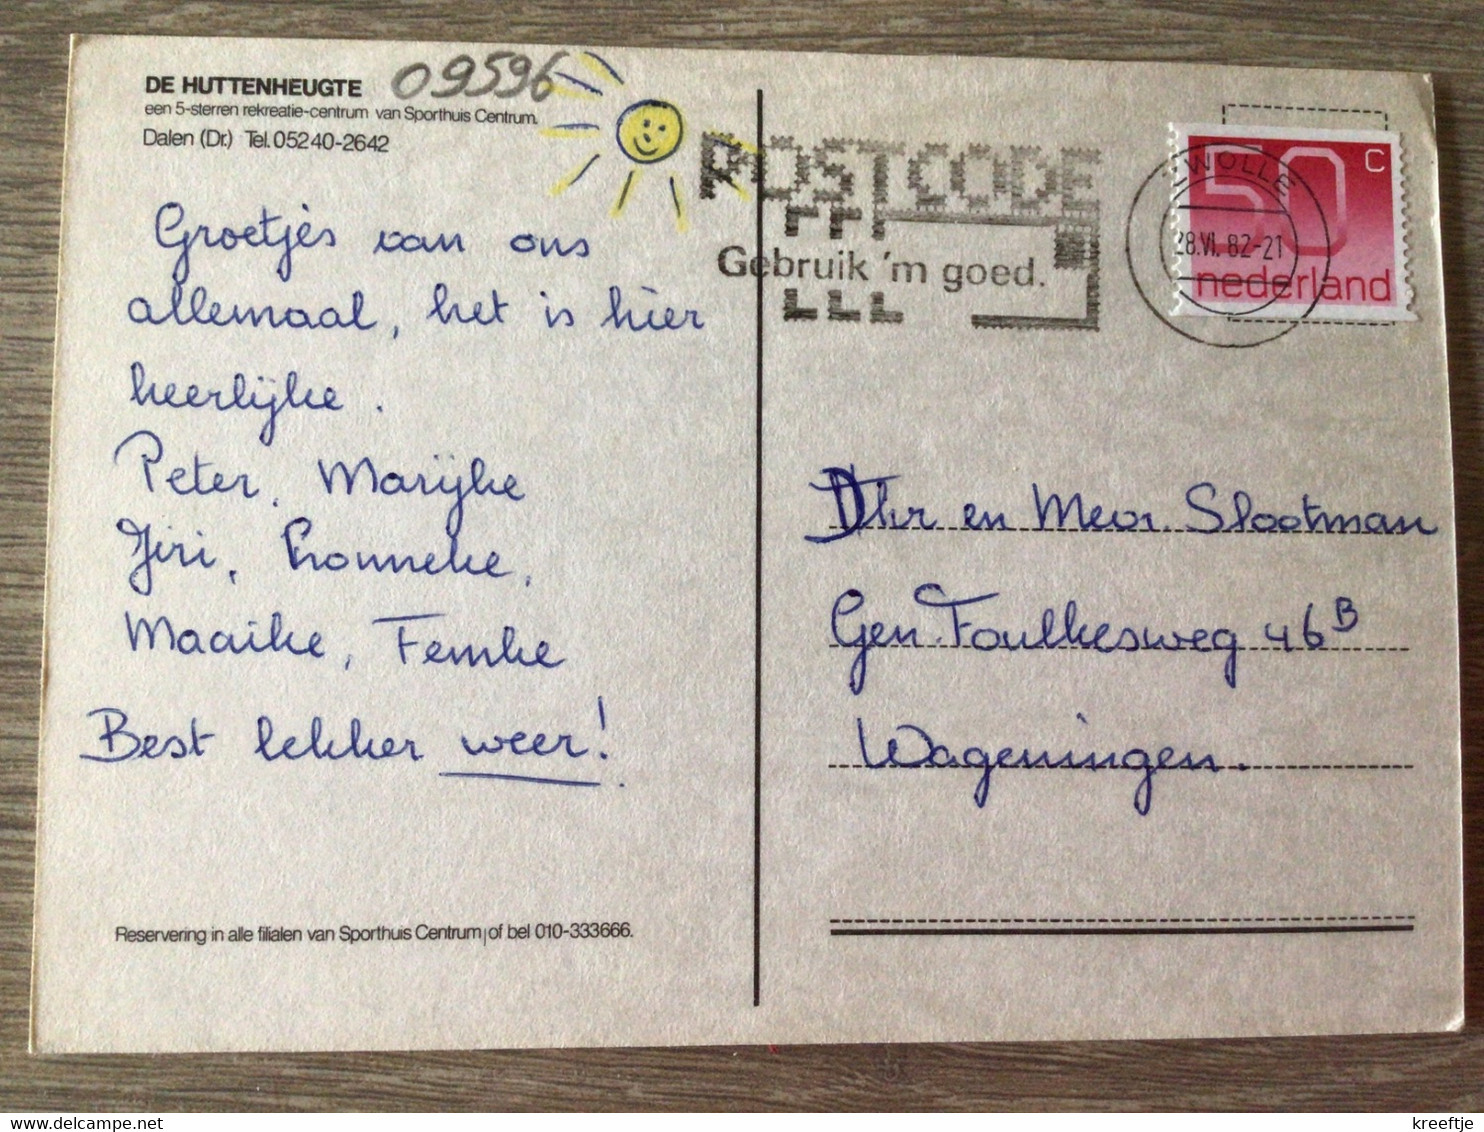 DE HUTTENHEUGTE 09596
een 5-sterren rekreatie-centrum van Sporthuis Centrum.
Dalen (Dr.) Tel. 05240-2642
Groetjes van ons
allemaal, het is hier
heerlijke.
Peter, Marijke
Jiri, Lonneke,
Maaike, Femke
Best lekker weer!
Reservering in alle filialen van Sporthuis Centrum of bel 010-333666.
POSTCODE
Gebruik 'm goed.
ZWOLLE
28.VI.82-21
50 C
nederland
Dhr en Mevr. Slootman
Gen. Foulkesweg 46B
Wageningen.
kreeftje